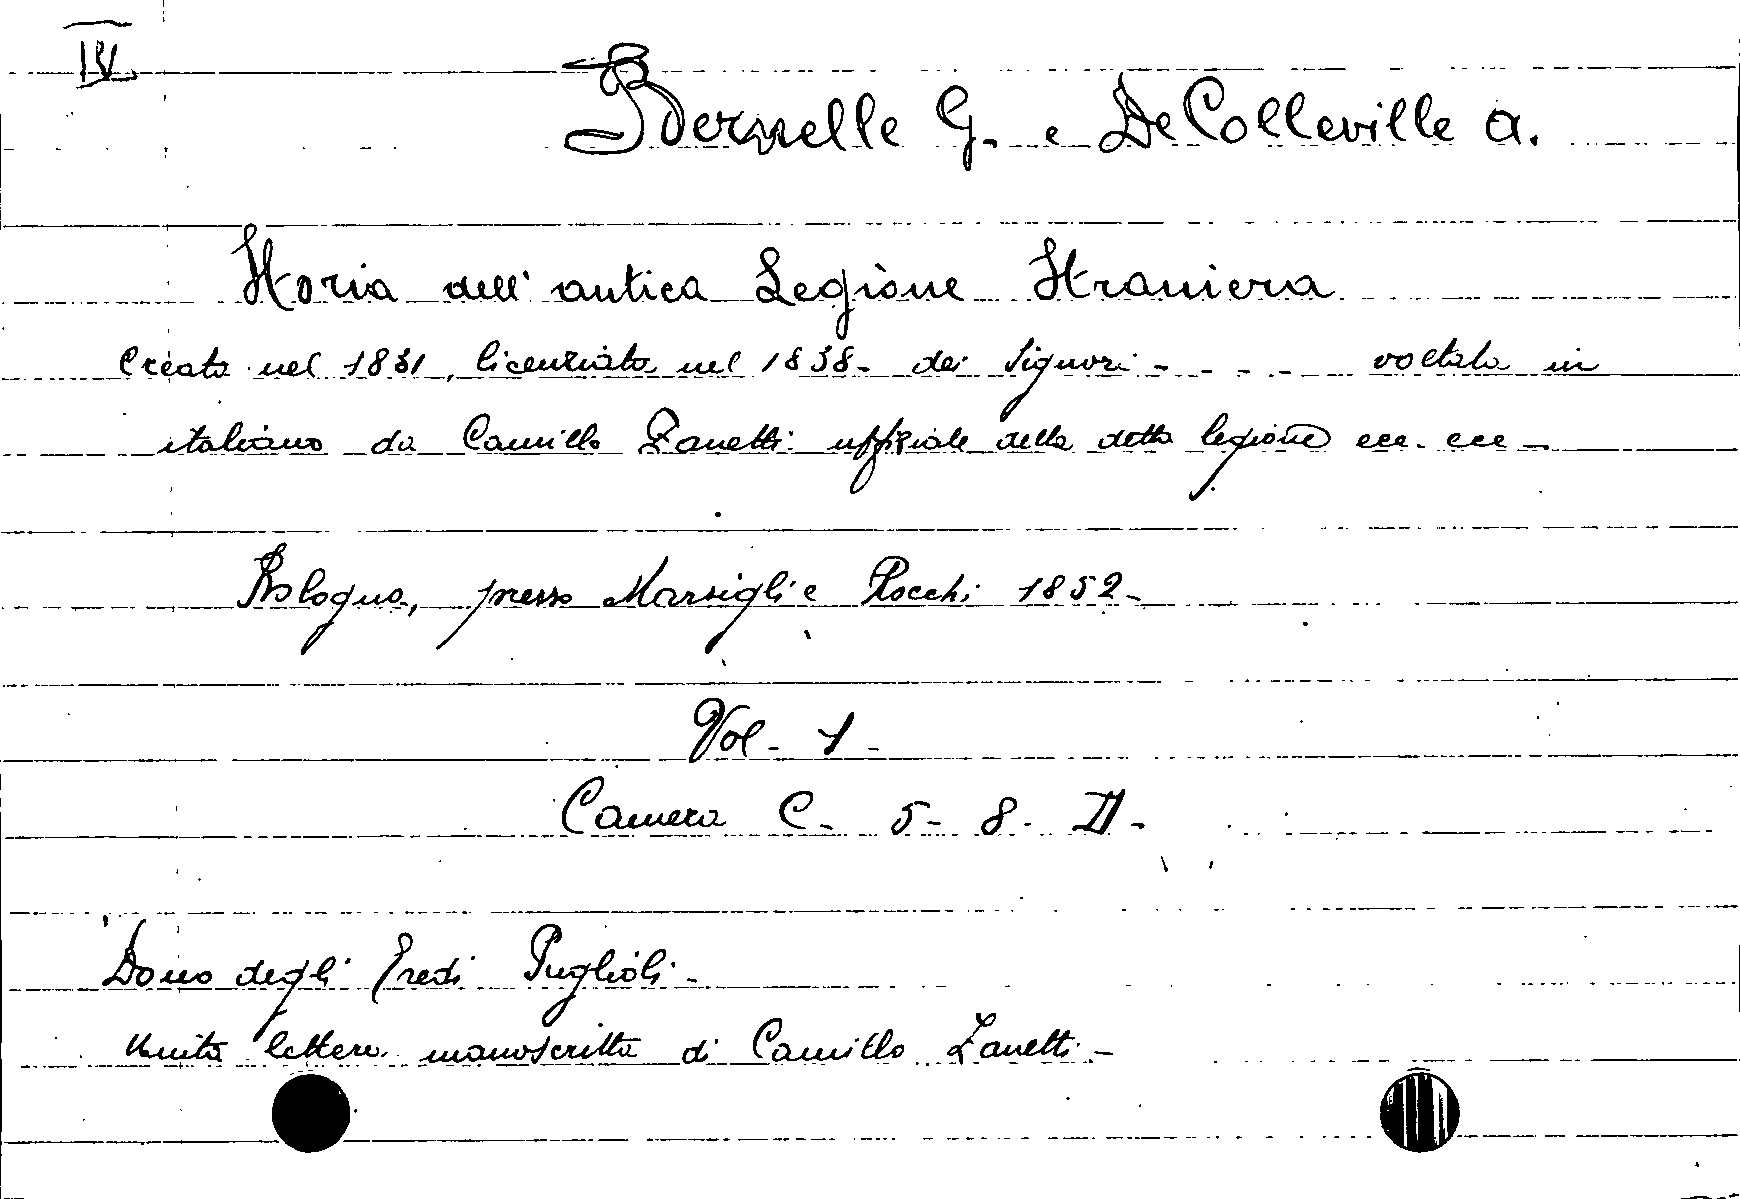 IV
Bernelle G. e De Colleville A.
Storia dell'antica Legione Straniera
Creata nel 1831, licenziata nel 1838- dei Signori - - - - voltata in
italiano da Camillo Zanetti uffiziale della detta legione ecc. ecc -
Bologna, presso Marsigli e Rocchi 1852-
Vol- 1-
Camera C- 5- 8- II-
Dono degli Eredi Puglioli-
Unita lettera manoscritta di Camillo Zanetti-